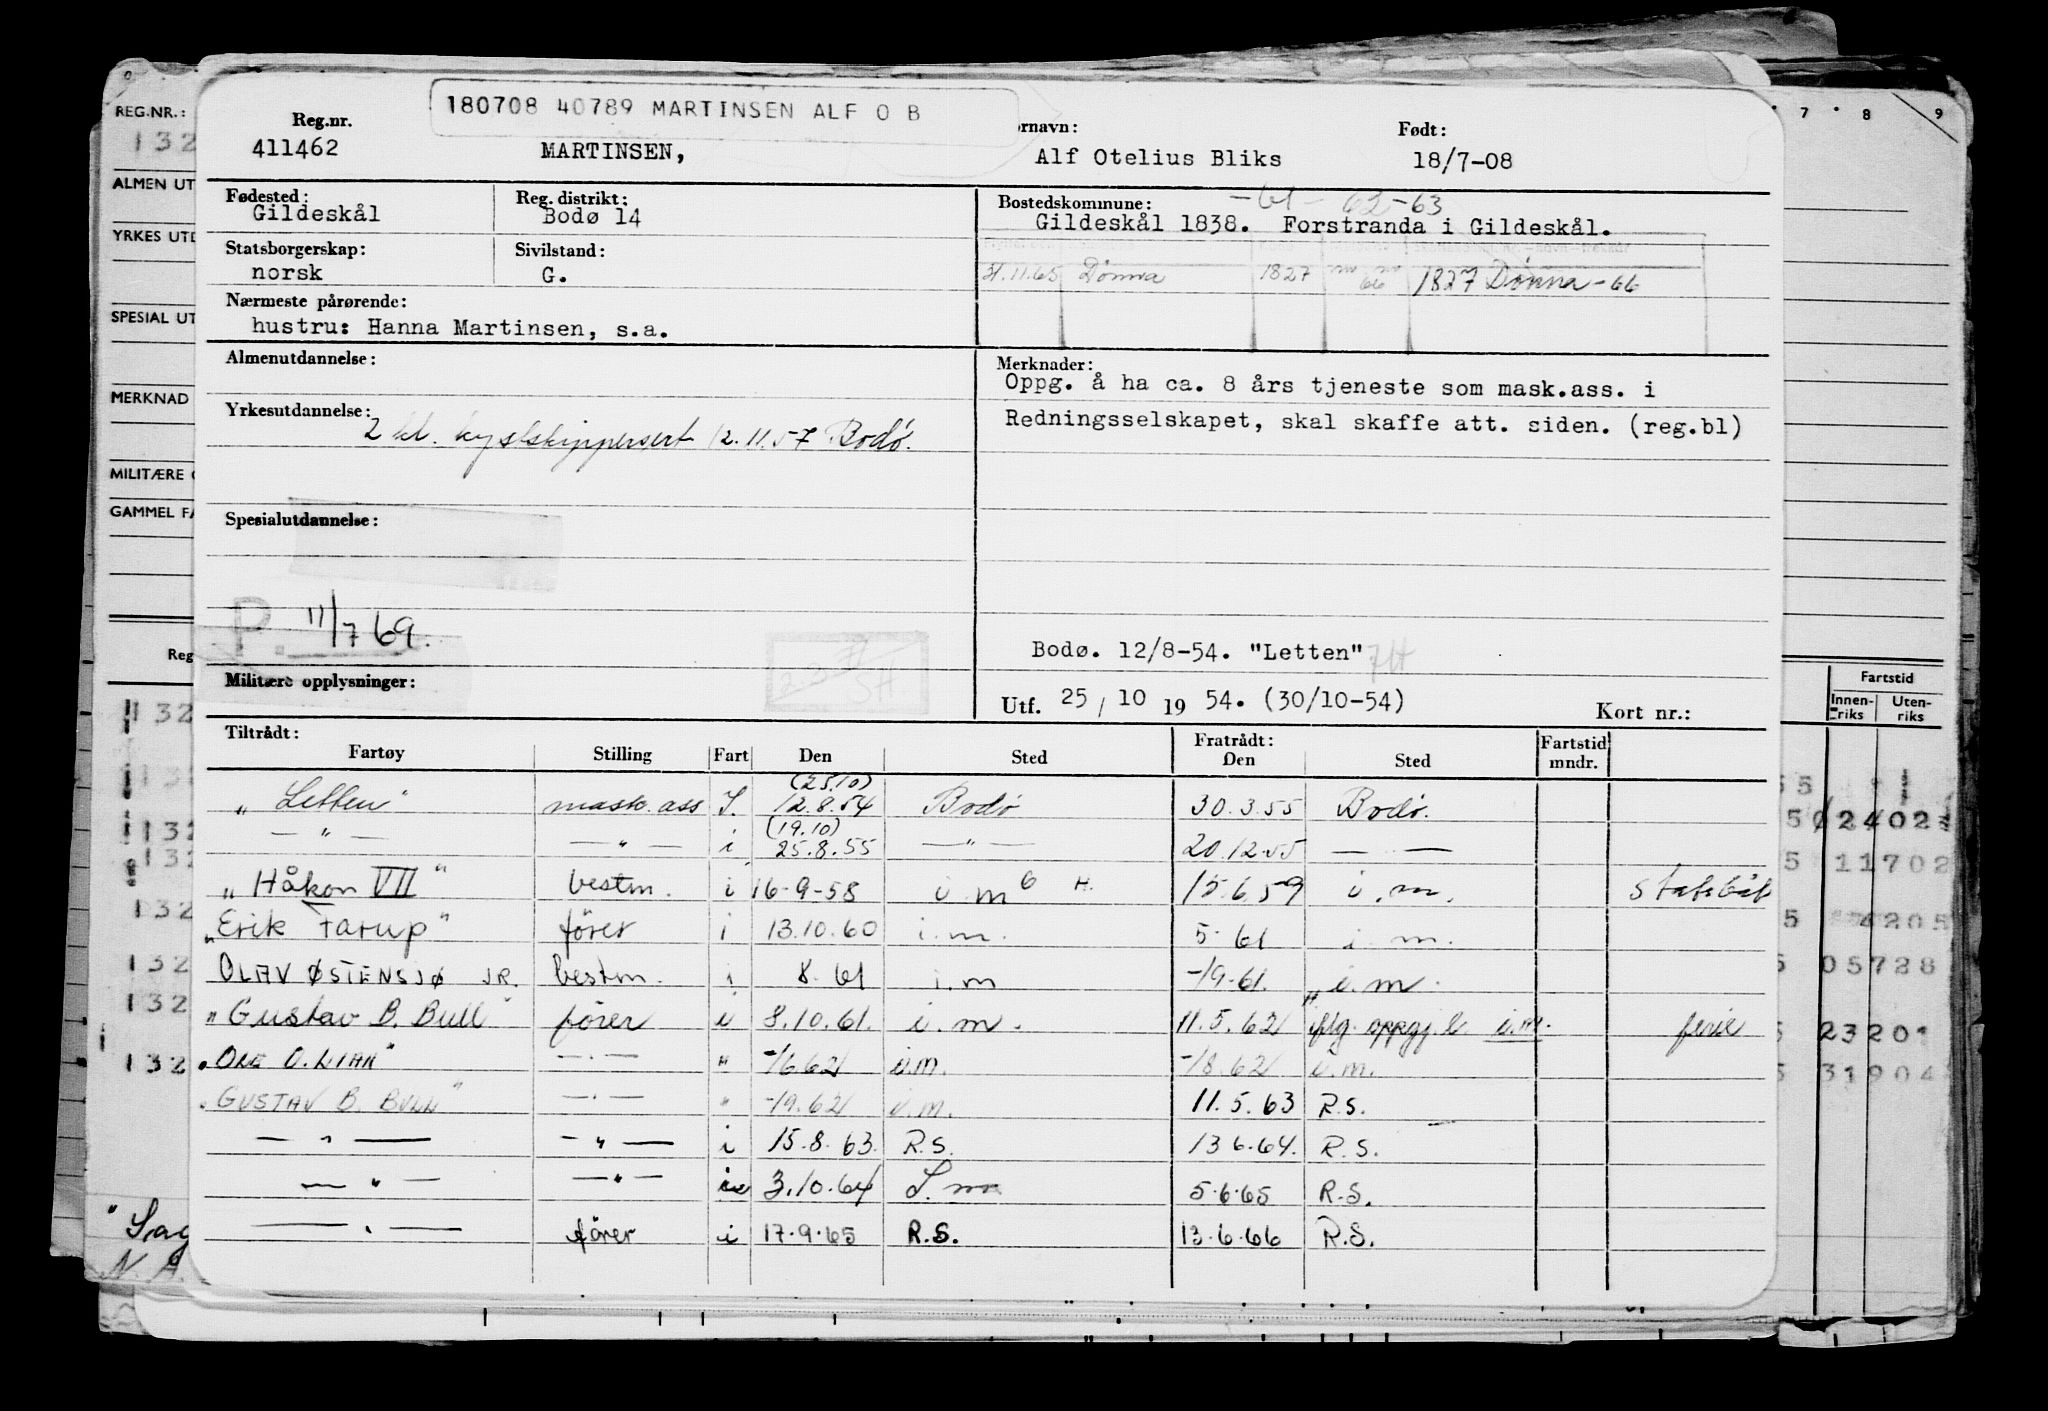 180708 40789 MARTINSEN ALF O B
REG.NR.:
132
Reg.nr.
411462
MARTINSEN,
ornavn:
Alf Otelius Bliks
Født:
18/7-08
7 8 9
ALMEN UT
YRKES UTD
SPECIAL UT
MERKNAD
MILITÆRE
GAMMEL FA
Fødested:
Gildeskål
Reg. distrikt:
Bodø 14
Bostedskommune: -61- 62-63
Gildeskål 1838. Forstranda i Gildeskål.
Statsborgerskap:
norsk
Sivilstand:
G.
31.11.65 Dønna 1827 66 1827 Dønna-66
Nærmeste pårørende:
hustru: Hanna Martinsen, s.a.
Almenutdannelse:
Merknader:
Oppg. å ha ca. 8 års tjeneste som mask.ass. i
Redningsselskapet, skal skaffe att. siden. (reg.bl)
Yrkesutdannelse:
2 kl. kystskippersert 12.11.57 Bodø.
Spesialutdannelse:
P. 11/7 69.
Bodø. 12/8-54. "Letten"
Militære opplysninger:
Utf. 25 / 10 19 54. (30/10-54)
Kort nr.:
Reg
Fartstid
Innenriks
Uten-riks
Tiltrådt:
Fartøy Stilling Fart Den Sted
Fratrådt:
Den Sted
Fartstid mndr.
"Letten" mask.ass I. (25.10) 12.8.54 Bodø 30.3.55 Bodø.
— " — — " — i (19.10) 25.8.55 — " — 20.12.55 — —
"Håkon VII" bestm. i 16-9-58 i.m 15.6.59 i.m. stafsbåt
"Erik Tarup" fører i 13.10.60 i.m. 5-61 i.m.
OLAV ØSTENSJØ JR. bestm. i 8-61 i.m -19-61. i.m.
"Gustav B. Bull" fører i 8.10.61. i.m. 11.5.62 iflg. oppgj. i.m. ferie
"OLE O. LIAN" — " — " -16.62 i.m. -18.62 i.m.
"GUSTAV B. BULL" — " — " -19.62 i.m. 11.5.63 R.S.
— " — — " — i 15.8.63. R.S. 13 6.64. R.S.
— " — — " — 3.10.64 S.m 5.6.65 R.S.
— " — fører i 17.9.65 R.S. 13-6-66 R.S.
132
132
132
132
132
132
02402
11702
4205
05728
23201
31904
"Sag
N. A.